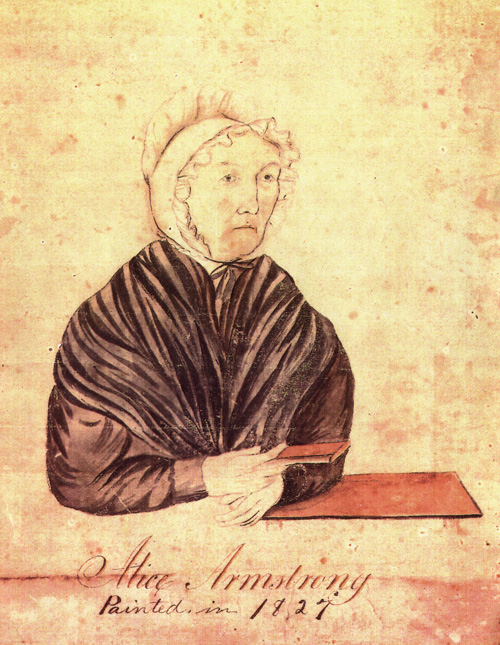 Alice Armstrong
Painted in 1827